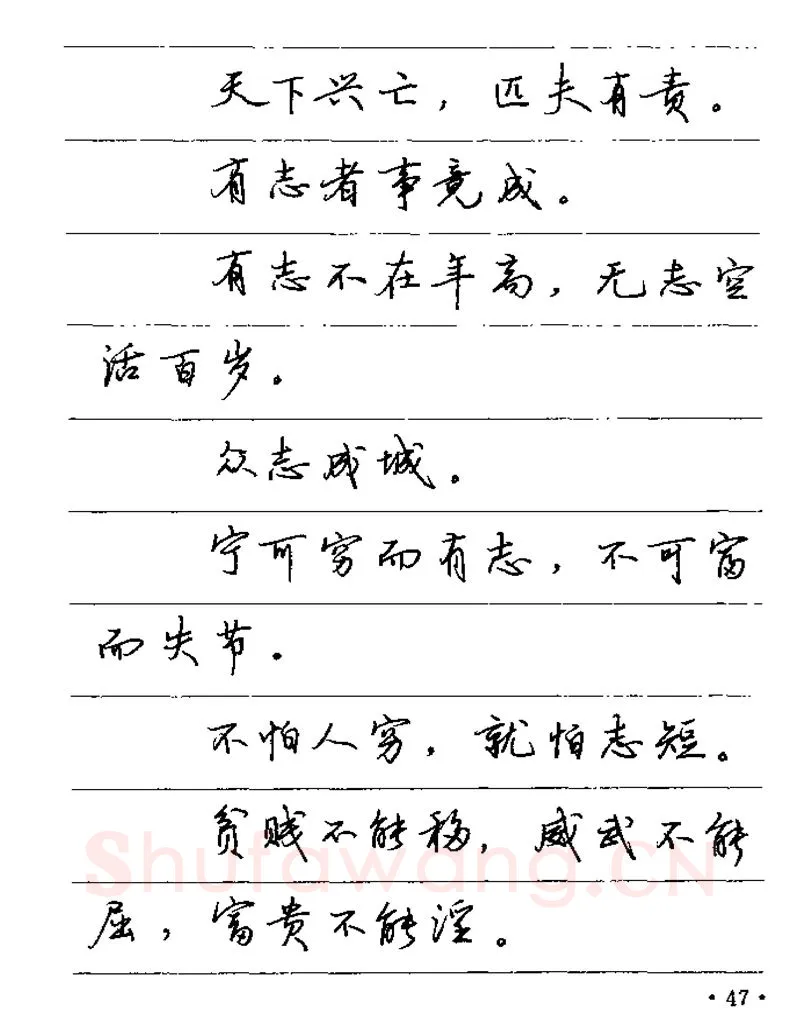 天下兴亡，匹夫有责。
有志者事竟成。
有志不在年高，无志空
活百岁。
众志成城。
宁可穷而有志，不可富
而失节。
不怕人穷，就怕志短。
贫贱不能移，威武不能
屈，富贵不能淫。
Shufawang.CN
·47·